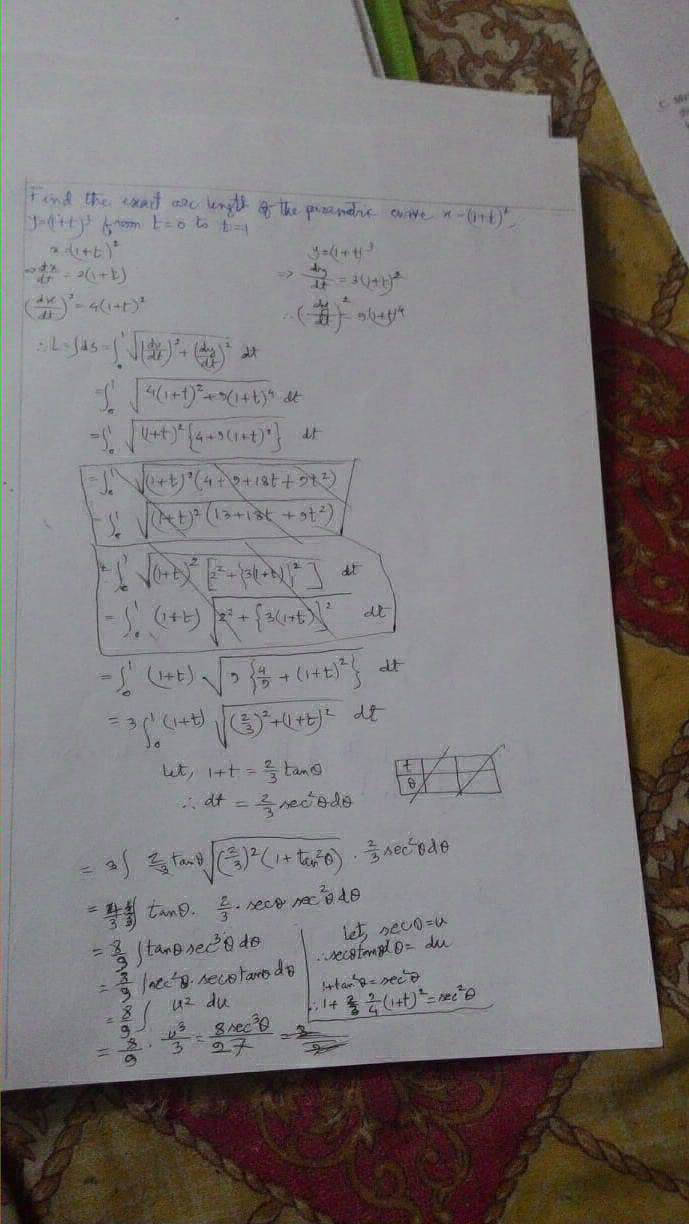 Find the exact arc length of the parametric curve x = (1+t)²,
y=(1+t)³ from t=0 to t=1
x=(1+t)²
⇒ dx/dt = 2(1+t)
(dx/dt)² = 4(1+t)²
y=(1+t)³
⇒ dy/dt = 3(1+t)²
∴ (dy/dt)² = 9(1+t)⁴
∴ L = ∫ds = ∫₀¹ √((dx/dt)² + (dy/dt)²) dt
= ∫₀¹ √(4(1+t)² + 9(1+t)⁴) dt
= ∫₀¹ √((1+t)² {4+9(1+t)²}) dt
= ∫₀¹ √((1+t)² (4+9+18t+9t²))
= ∫₀¹ √((1+t)² (13+18t+9t²))
= ∫₀¹ √((1+t)² [2² + {3(1+t)}²]) dt
= ∫₀¹ (1+t) √(2² + {3(1+t)}²) dt
= ∫₀¹ (1+t) √(9 {4/9 + (1+t)²}) dt
= 3∫₀¹ (1+t) √((2/3)² + (1+t)²) dt
Let, 1+t = 2/3 tanθ
∴ dt = 2/3 sec²θ dθ
t
θ
= 3∫ 2/3 tanθ √((2/3)² (1+tan²θ)) · 2/3 sec²θ dθ
tanθ · 2/3 · secθ sec²θ dθ
= 8/9 ∫ tanθ sec³θ dθ
= 8/9 ∫ sec²θ · secθ tanθ dθ
= 8/9 ∫ u² du
= 8/9 · u³/3 = 8sec³θ/27
Let, secθ = u
∴ secθ tanθ dθ = du
1+tan²θ = sec²θ
∴ 1 + 9/4 (1+t)² = sec²θ